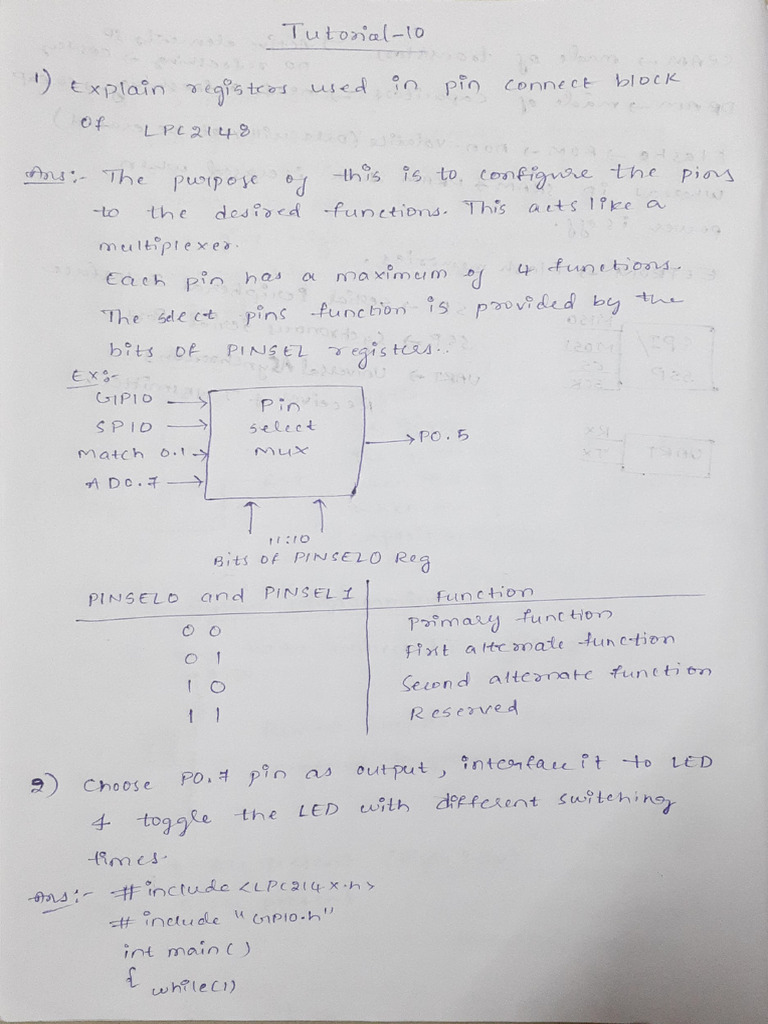 Tutorial-10
1) Explain registers used in pin connect block
of LPC2148
Ans:- The purpose of this is to configure the pins
to the desired functions. This acts like a
multiplexer.
Each pin has a maximum of 4 functions.
The select pins function is provided by the
bits of PINSEL registers..
Ex:-
GIPIO
SPIO
Match 0.1
AD0.7
Pin
select
mux
P0.5
11:10
Bits of PINSEL0 Reg
PINSEL0 and PINSEL1 Function
0 0 Primary function
0 1 First alternate function
1 0 Second alternate function
1 1 Reserved
2) Choose P0.7 pin as output, interface it to LED
& toggle the LED with different switching
times.
Ans:- #include <LPC214x.h>
#include "GIPIO.h"
int main()
{ while(1)